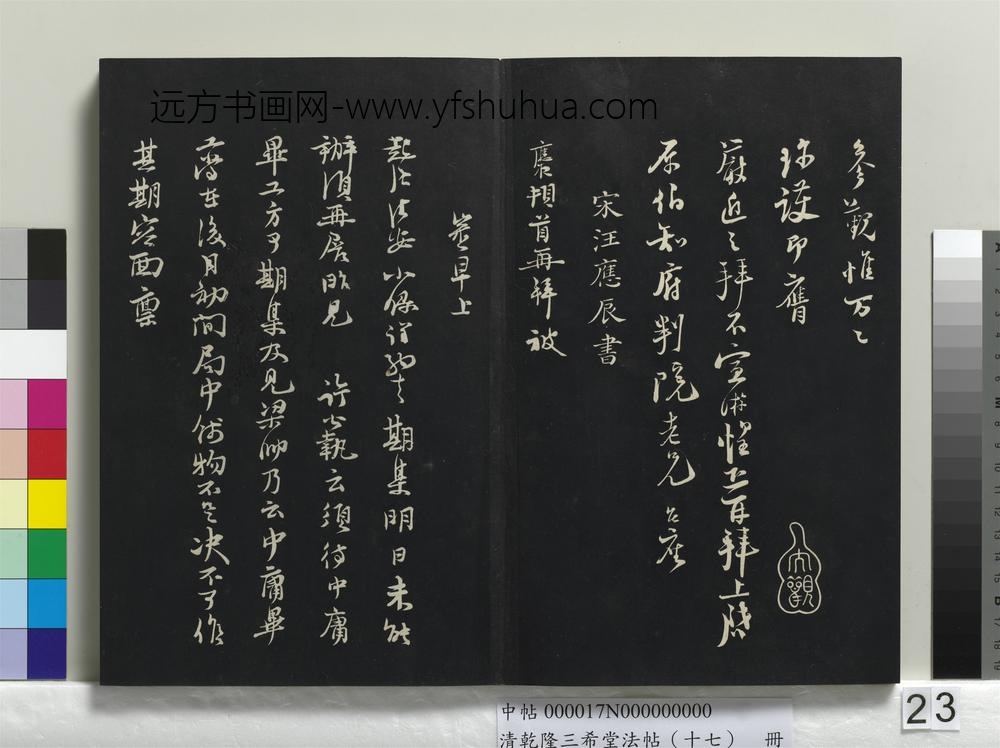 远方书画网-www.yfshuhua.com
參觀惟万々
珍護即膺
嚴近之拜不宣游惶恐百拜上啓
原伯知府判院老兄台座
宋汪應辰書
應頓首再拜被
早上
期集明日未能
辦須再居
許公執云須待中庸
畢工方可期集及見梁帥乃云中庸畢
在後月初間局中儲物不足決不可作
其期容面稟
大觀
中帖 000017N000000000
清乾隆三希堂法帖（十七） 冊
23